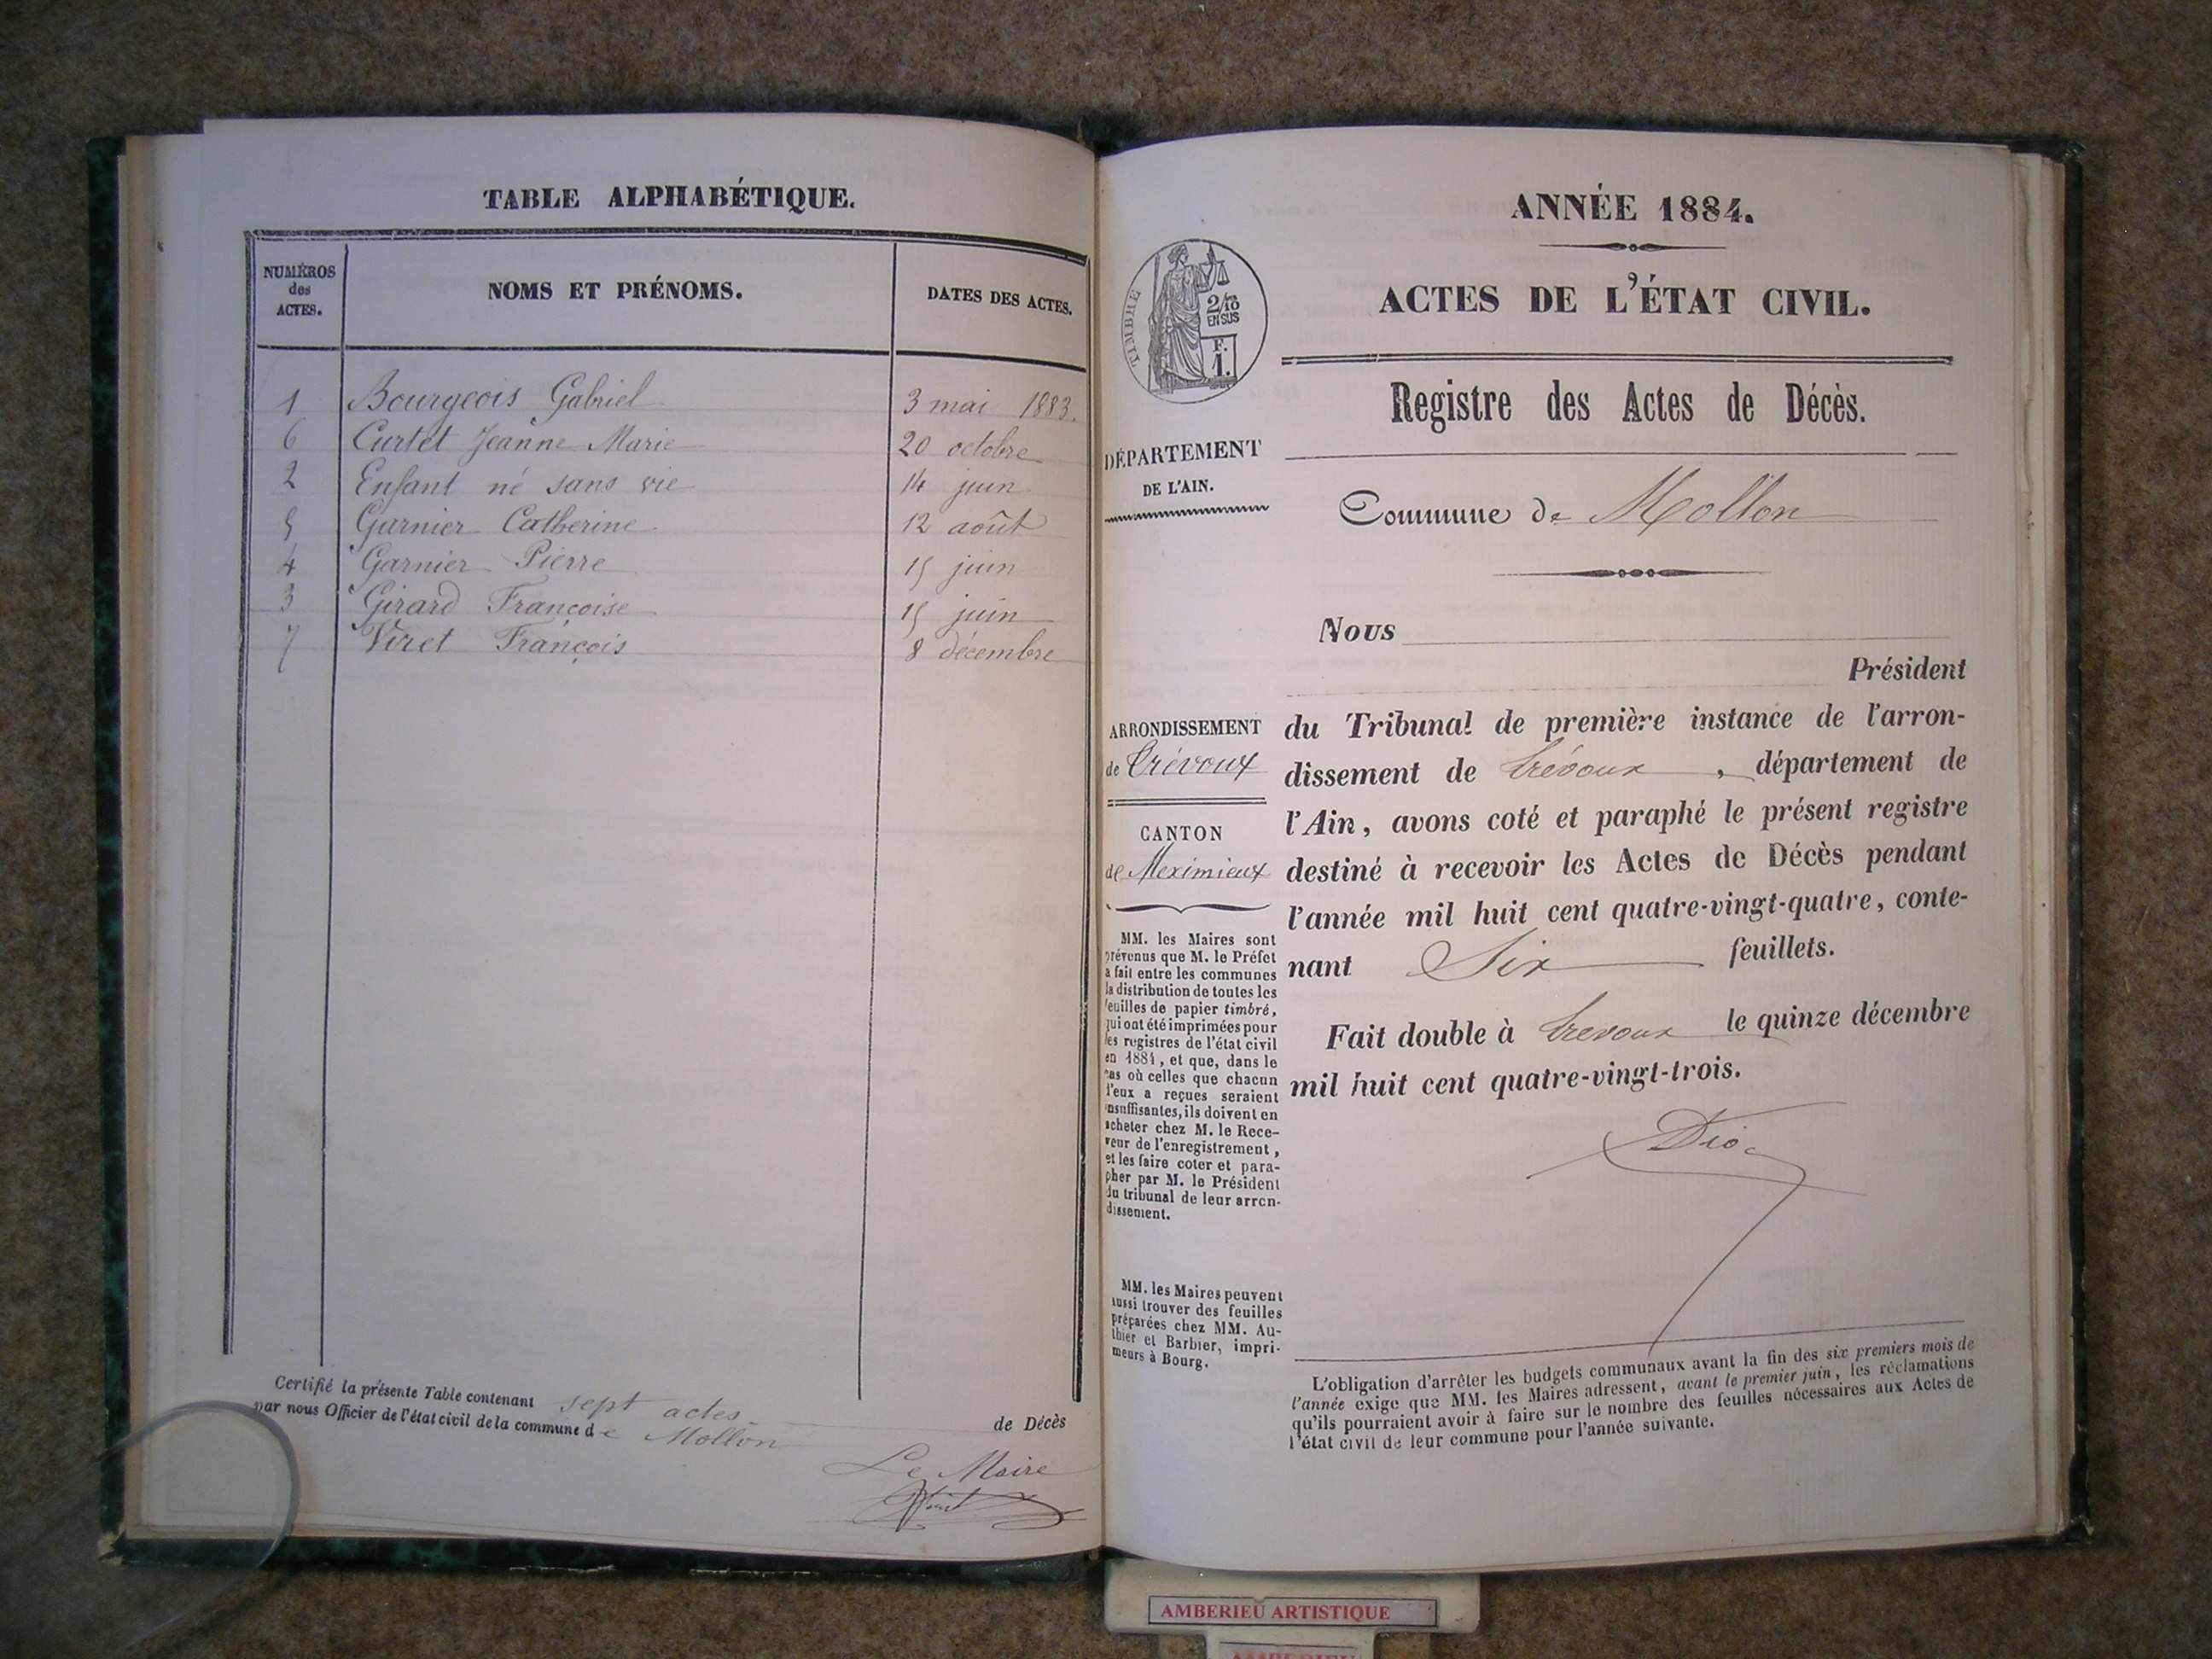 TABLE ALPHABÉTIQUE.
NUMÉROS
des
ACTES.
NOMS ET PRÉNOMS.
DATES DES ACTES.
1 Bourgeois Gabriel 3 mai 1883.
6 Curtet Jeanne Marie 20 octobre
2 Enfant né sans vie 14 juin
5 Garnier Catherine 12 août
4 Garnier Pierre 15 juin
3 Girard Françoise 15 juin
7 Viret François 8 décembre
Certifié la présente Table contenant sept actes de Décès
par nous Officier de l'état civil de la commune de Mollon
Le Maire
ANNÉE 1884.
ACTES DE L'ÉTAT CIVIL.
TIMBRE
2/10
EN SUS
F.
1.
Registre des Actes de Décès.
DÉPARTEMENT
DE L'AIN.
Commune de Mollon
Nous
Président
ARRONDISSEMENT
de Trévoux
CANTON
de Meximieux
du Tribunal de première instance de l'arron-
dissement de Trévoux, département de
l'Ain, avons coté et paraphé le présent registre
destiné à recevoir les Actes de Décès pendant
l'année mil huit cent quatre-vingt-quatre, conte-
nant Six feuillets.
Fait double à Trevoux le quinze décembre
mil huit cent quatre-vingt-trois.
MM. les Maires sont
prévenus que M. le Préfet
a fait entre les communes
la distribution de toutes les
feuilles de papier timbré,
qui ont été imprimées pour
les registres de l'état civil
en 1884, et que, dans le
cas où celles que chacun
d'eux a reçues seraient
insuffisantes, ils doivent en
acheter chez M. le Rece-
veur de l'enregistrement,
et les faire coter et para-
pher par M. le Président
du tribunal de leur arron-
dissement.
MM. les Maires peuvent
aussi trouver des feuilles
préparées chez MM. Au-
thier et Barbier, impri-
meurs à Bourg.
L'obligation d'arrêter les budgets communaux avant la fin des six premiers mois de
l'année exige que MM. les Maires adressent, avant le premier juin, les réclamations
qu'ils pourraient avoir à faire sur le nombre des feuilles nécessaires aux Actes de
l'état civil de leur commune pour l'année suivante.
AMBERIEU ARTISTIQUE
AMBERIEU